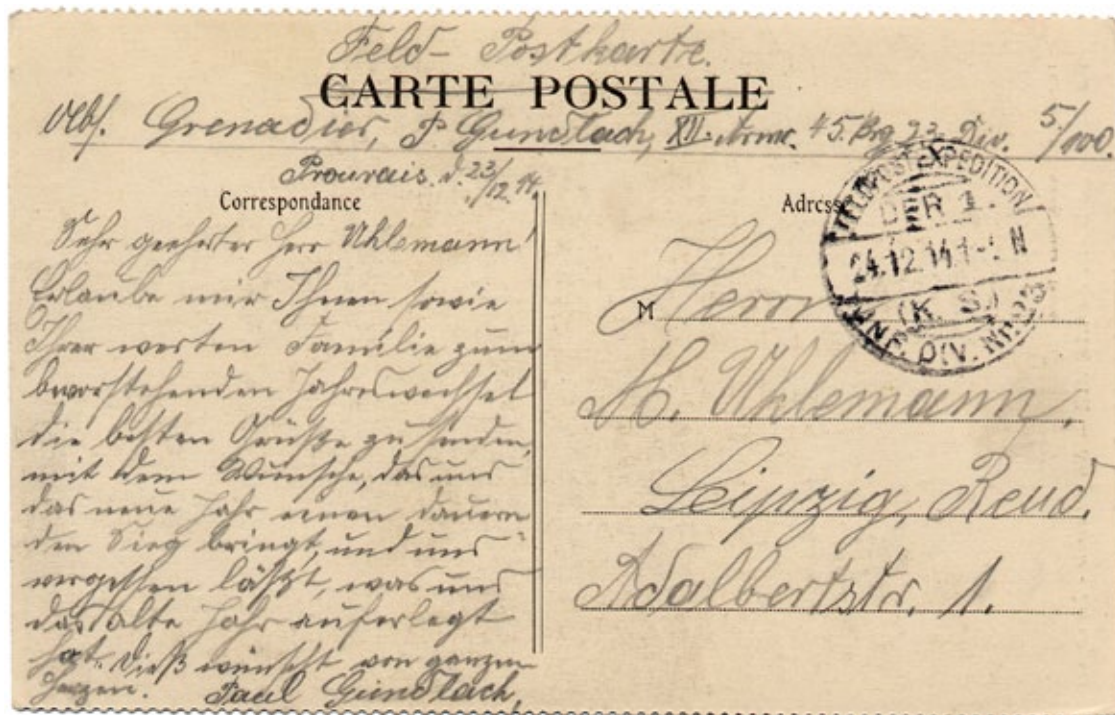 Feld-Postkarte.
CARTE POSTALE
Abs. Grenadier, P. Gundlach, XII. Arm. 45. Brg 23. Div. 5/100.
Prouvais. d. 23/12. 14.
Correspondance
Sehr geehrter Herr Uhlemann!
Erlaube mir Ihnen sowie
Ihrer werten Familie zum
bevorstehenden Jahreswechsel
die besten Grüße zu senden,
mit dem Wunsche, das uns
das neue Jahr einen dauern
den Sieg bringt, und uns
vergessen läßt, was uns
das alte Jahr auferlegt
hat. Dieß wünscht von ganzen
Herzen. Paul Gundlach,
Adresse
FELDPOSTEXPEDITION
DER 1.
24.12.14.1- N
(K. S.)
INF. DIV. Nr. 23
M
Herrn
H. Uhlemann,
Leipzig, Reud.
Adalbertstr. 1.